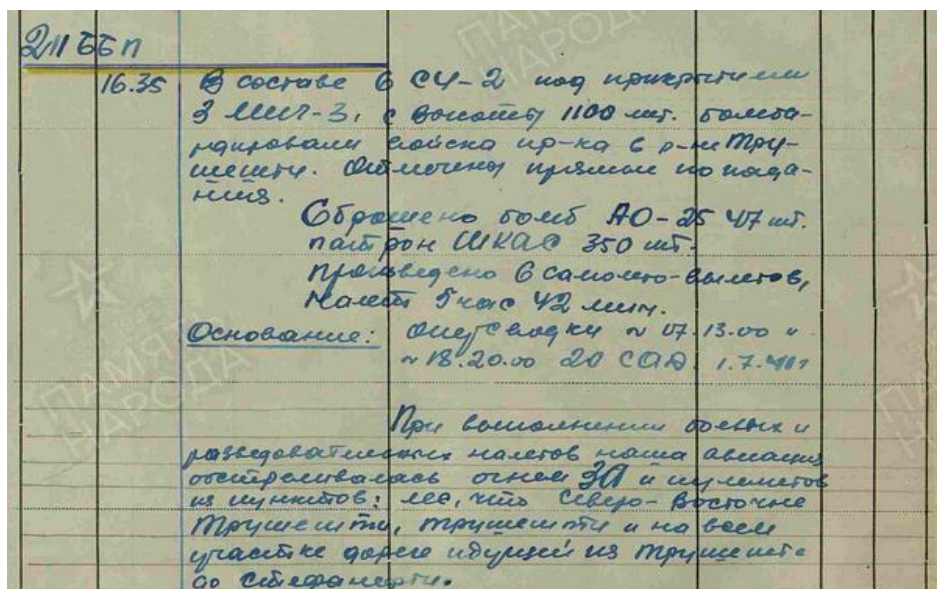 211 ББП
16.35 В составе 6 СУ-2 под прикрытием
3 Миг-3, с высоты 1100 мт. бомба-
рдировали войска пр-ка в р-не Тру-
шешти. Отмечены прямые попада-
ния.
Сброшено бомб АО-25 47 шт.
патрон ШКАС 350 шт.
Произведено 6 самолето-вылетов,
Налет 5 час 42 мин.
Основание: Опер сводки № 07.13.00 и
№ 18.20.00 20 САД 1.7.41г
При выполнении боевых и
разведовательных налетов наша авиация
обстреливалась огнем ЗА и пулеметов
из пунктов: лес, что Северо-Восточне
Трушешти, Трушешти и на всем
участке дороге идущей из Трушешт
до Стефанешти.
ПАМЯТЬ
НАРОДА
ПАМЯТЬ
НАРОДА